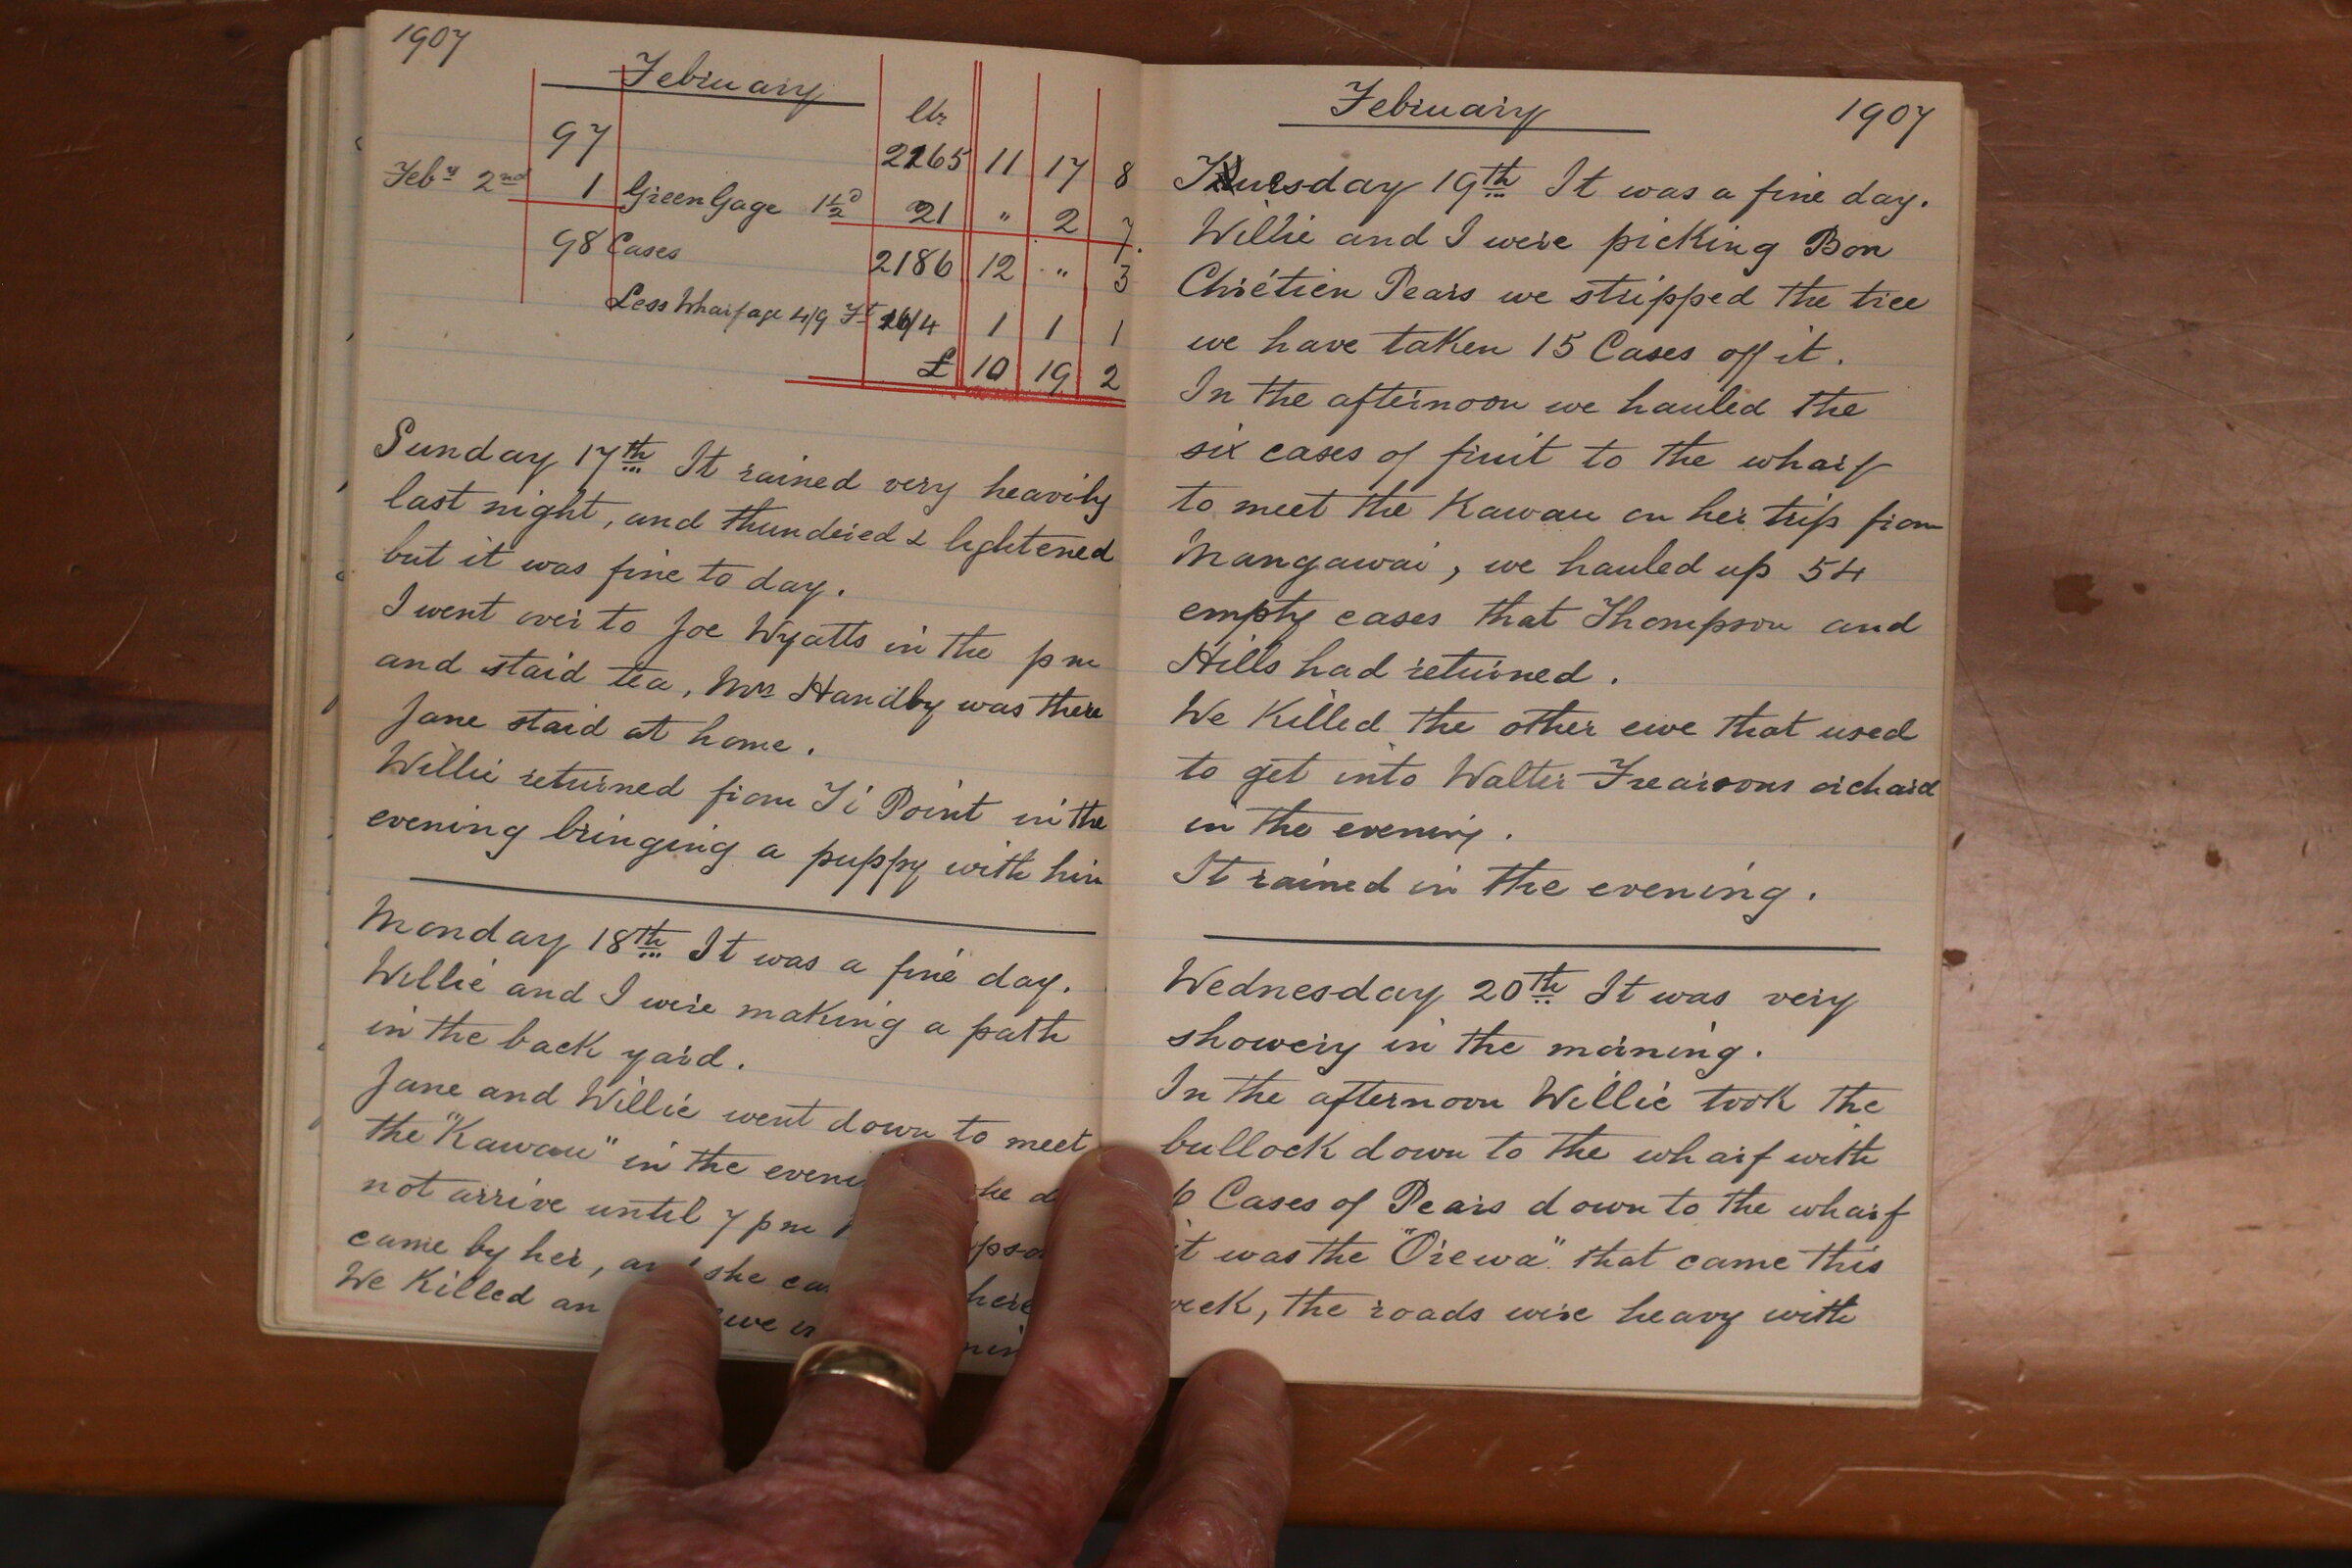 1907
February
lbs
97 2165 11 17 8
Feby 2nd 1 Green Gage 1½d 21 " 2 7.
98 Cases 2186 12 " 3
Less Wharfage 4/9 Ft 16/4 1 1 1
£ 10 19 2
Sunday 17th It rained very heavily
last night, and thundered & lightened
but it was fine to day.
I went over to Joe Wyatts in the pm
and staid tea, Mrs Handby was there
Jane staid at home.
Willie returned from Ti Point in the
evening bringing a puppy with him
Monday 18th It was a fine day.
Willie and I were making a path
in the back yard.
Jane and Willie went down to meet
the "Kawau" in the
not arrive until 7 pm
came by her, and she
We Killed an
February 1907
Tuesday 19th It was a fine day.
Willie and I were picking Bon
Chrétien Pears we stripped the tree
we have taken 15 Cases off it.
In the afternoon we hauled the
six cases of fruit to the wharf
to meet the Kawau on her trip from
Mangawai, we hauled up 54
empty cases that Thompson and
Hills had returned.
We Killed the other ewe that used
to get into Walter Frearsons orchard
in the evening.
It rained in the evening.
Wednesday 20th It was very
showery in the morning.
In the afternoon Willie took the
bullock down to the wharf with
6 Cases of Pears down to the wharf
it was the "Orewa" that came this
week, the roads were heavy with